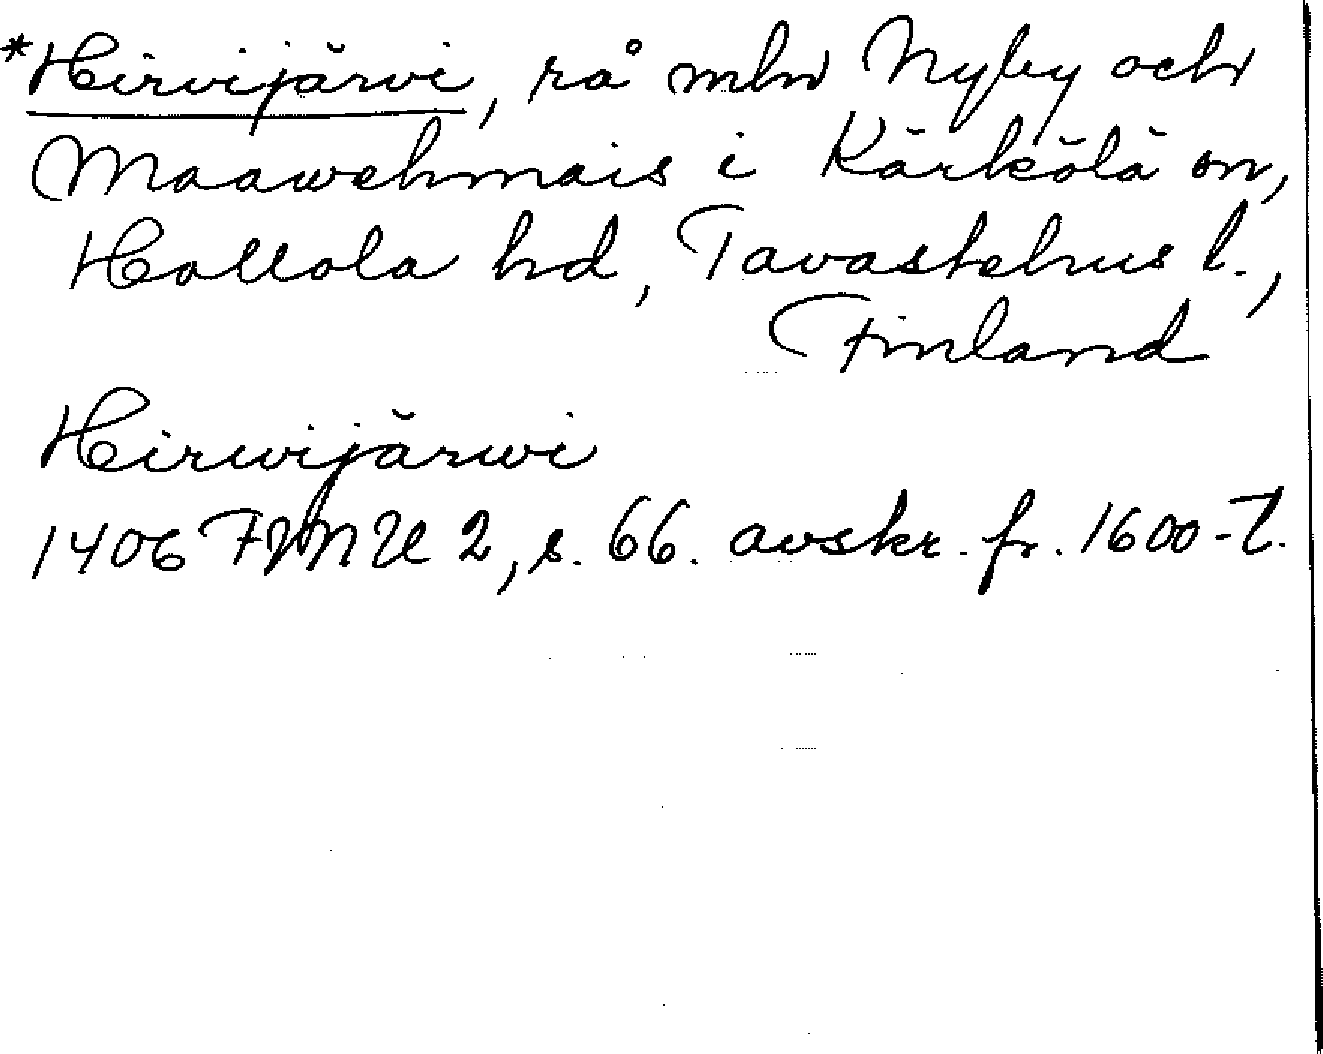 *Hirvijärvi, rå mln Nyby och
Maawehmais i Kärkölä sn,
Hollola hd, Tavastehus l.,
Finland
Hirwijärwi
1406 FMU 2, s. 66. avskr. fr. 1600-t.